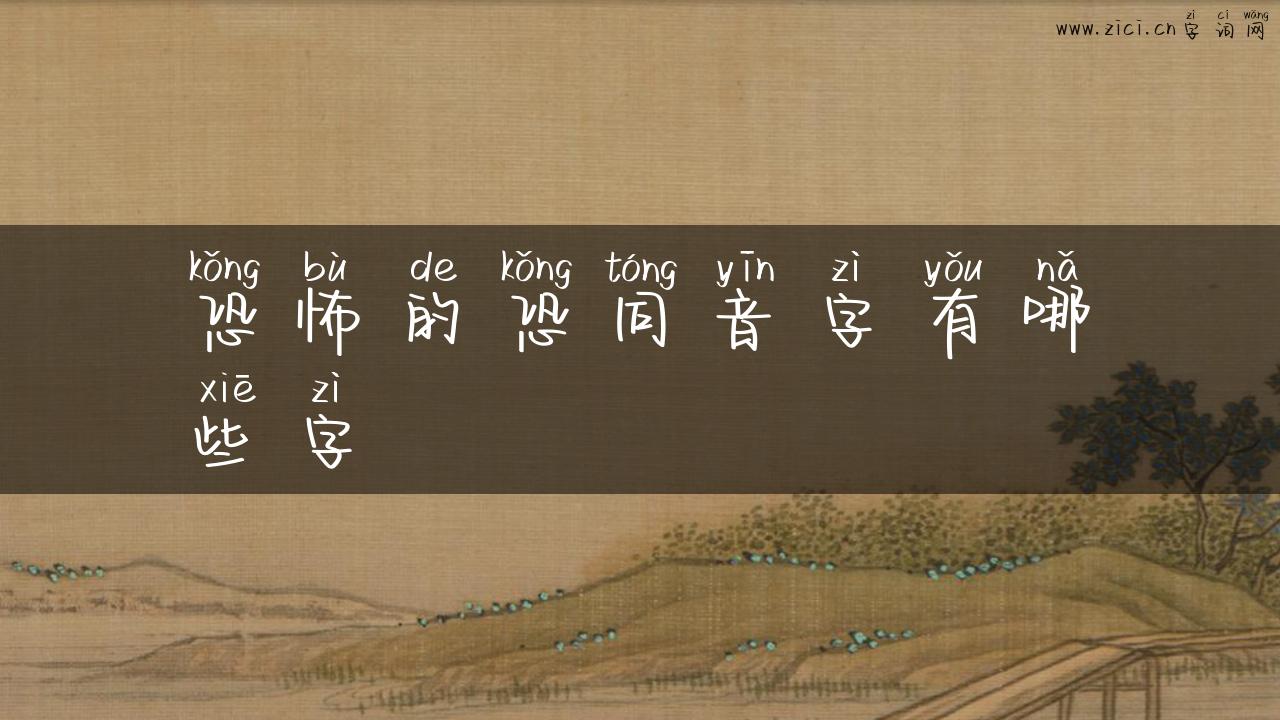 zì cí wǎng
www.zici.cn 字词网
kǒng bù de kǒng tóng yīn zì yǒu nǎ
恐怖的恐同音字有哪
xiē zì
些字